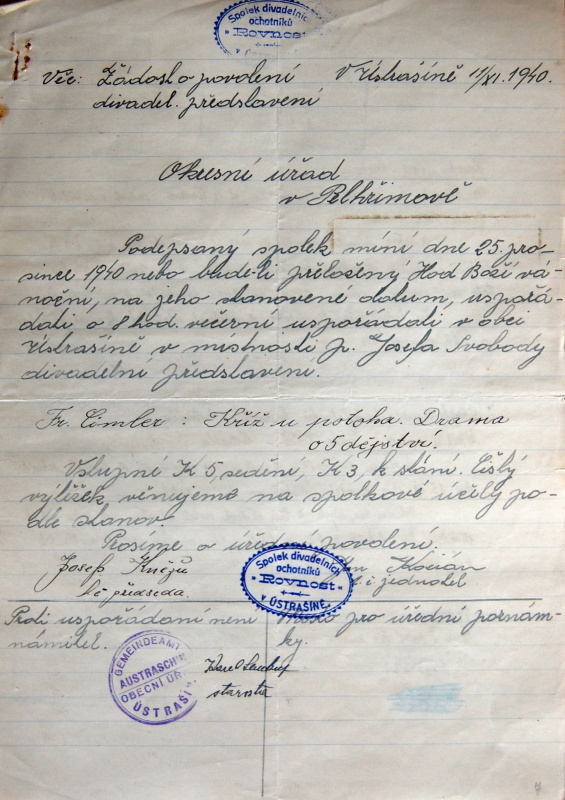 Spolek divadelních
ochotníků
Rovnost
Věc: Žádost o povolení
divadel. představení
V Ústrašíně 11/XI. 1940.
Okresní úřad
v Pelhřimově
Podepsaný spolek míní dne 25. pro-
since 1940 nebo bude-li přeložený Hod Boží vá-
noční, na jeho stanovené datum, uspořá-
dati o 8 hod. večerní uspořádati v obci
Ústrašíně v místnosti p. Josefa Svobody
divadelní představení.
Fr. Cimler: Kříž u potoka. Drama
o 5 dějství.
Vstupné K 5, sedění, K 3, k stání. Čistý
výtěžek, věnujeme na spolkové účely po-
dle stanov.
Prosíme o úřední povolení.
Josef Kněžů
t. č. předseda.
Spolek divadelních
ochotníků
Rovnost
v ÚSTRAŠÍNĚ.
Jan Kocián
t. č. jednatel
Proti uspořádání není
námitek.
Místo pro úřední poznám-
ky.
GEMEINDEAMT
AUSTRASCHIN
OBECNÍ ÚŘ
ÚSTRAŠÍ
Karel
starosta